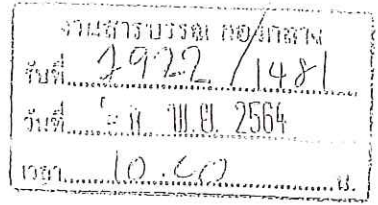 งานสารบรรณ กองกลาง
รับที่ 7922/1481
วันที่ พ.ย. 2564
เวลา 10.40 น.